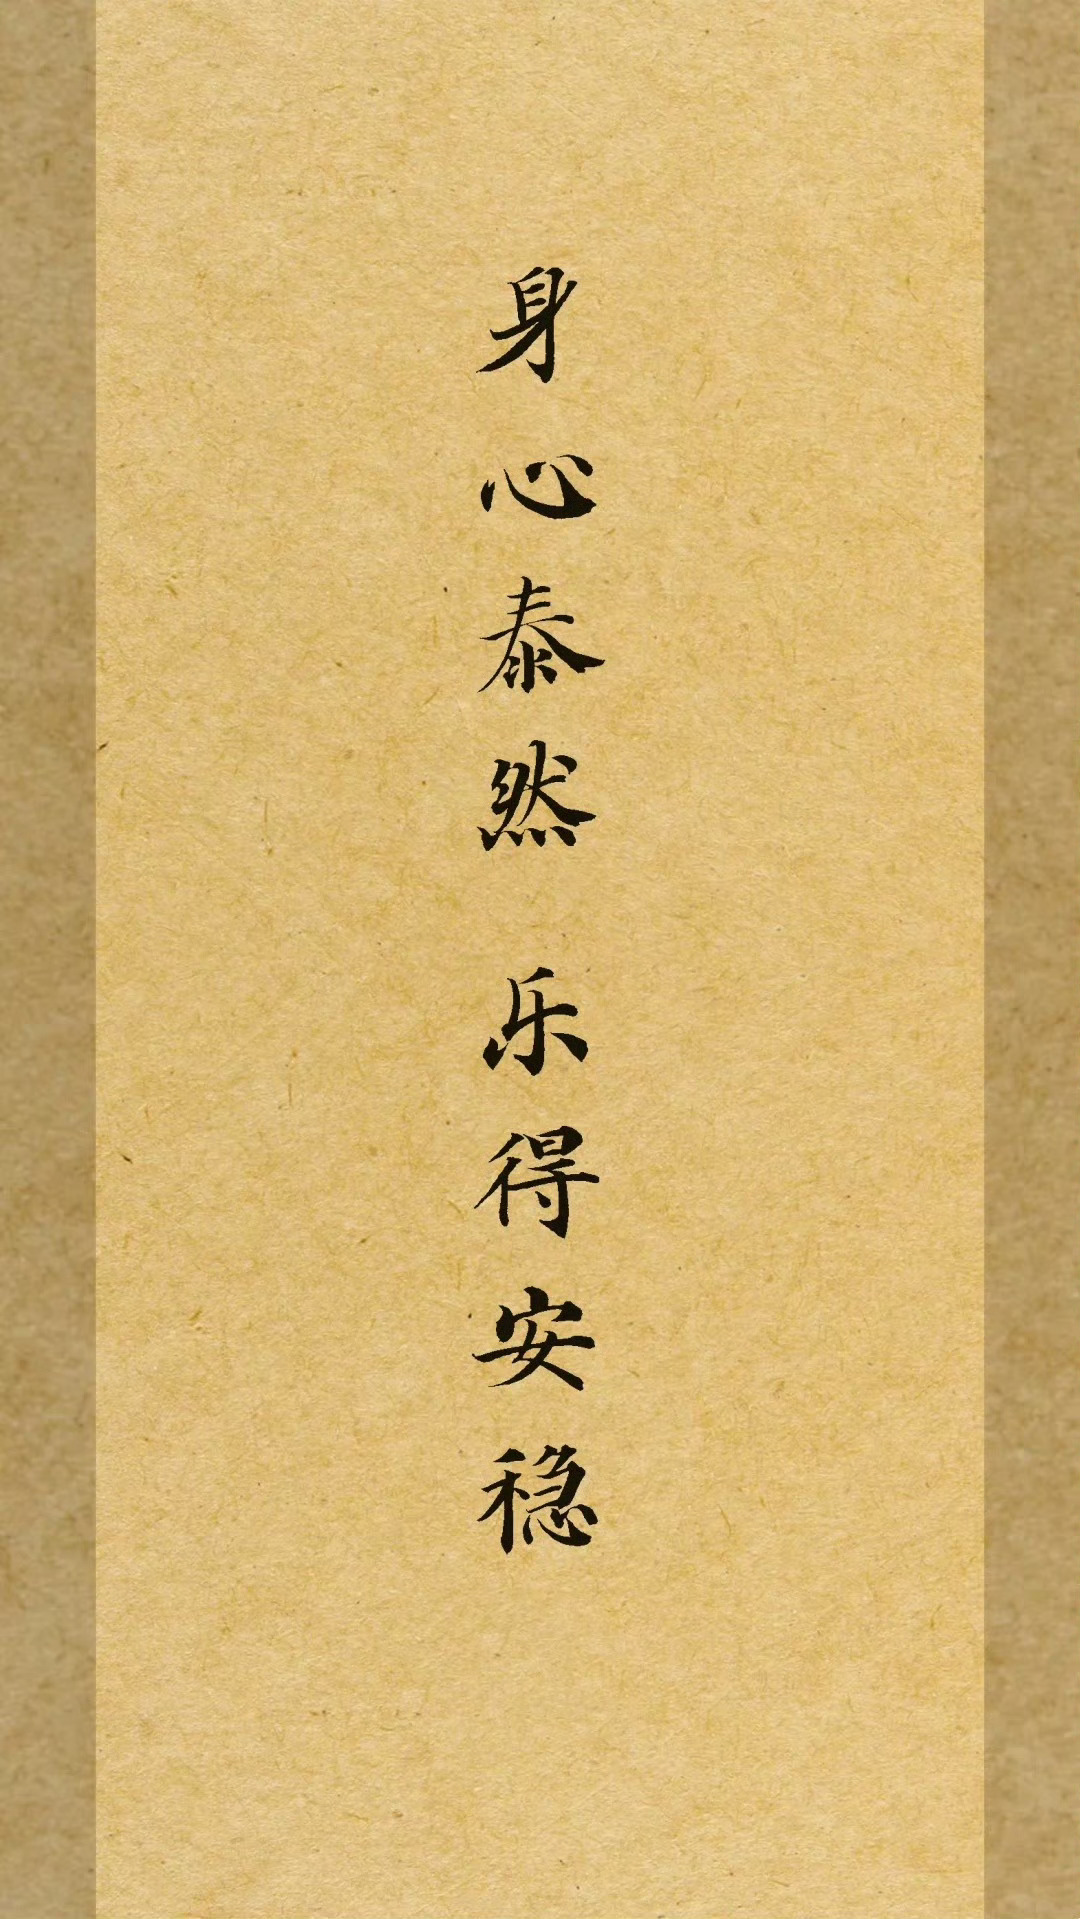 身心泰然 乐得安稳